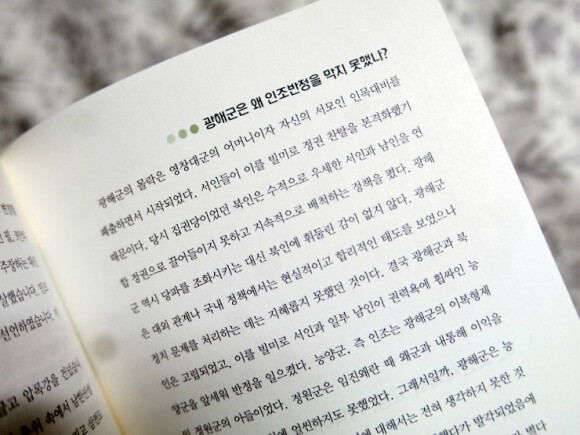 광해군은 왜 인조반정을 막지 못했나?
광해군의 몰락은 영창대군의 어머니이자 자신의 서모인 인목대비를
폐출하면서 시작되었다. 서인들이 이를 빌미로 정권 찬탈을 본격화했기
때문이다. 당시 집권당이었던 북인은 수적으로 우세한 서인과 남인을 연
합 정권으로 끌어들이지 못하고 지속적으로 배척하는 정책을 폈다. 광해
군 역시 당파를 조화시키는 대신 북인에 휘둘린 감이 없지 않다. 광해군
은 대외 관계나 국내 정책에서는 현실적이고 합리적인 태도를 보였으나
정치 문제를 처리하는 데는 지혜롭지 못했던 것이다. 결국 광해군과 북
인은 고립되었고, 이를 빌미로 서인과 일부 남인이 권력욕에 휩싸인 능
양군을 앞세워 반정을 일으켰다. 능양군, 즉 인조는 광해군의 이복형제
인 정원군의 아들이었다. 정원군은 임진왜란 때 왜군과 내통해 이익을
엄씬하지도 못했었다. 그래서일까. 광해군은 능
에 대해서는 전혀 생각하지 못한 것
했다가 발각되었음에
살했습니다.
선언하였습니다.
압록강을
속에서